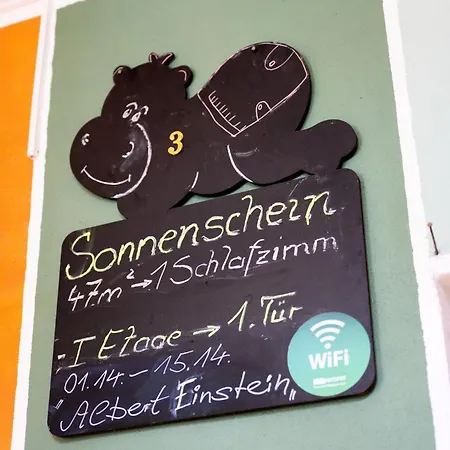 3
Sonnenschein
47m² → 1 Schlafzimm
- I Etage → 1. Tür
01.14. - 15.14.
"Albert Einstein"
WiFi